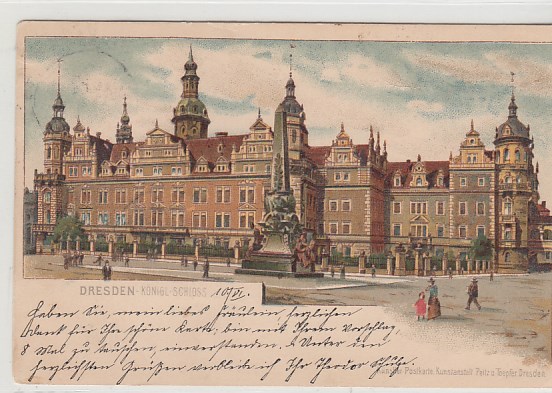 DRESDEN - KÖNIGL. SCHLOSS 10/VI.
Haben Sie, mein liebes Fräulein, herzlichen
Dank für Ihre schöne Karte; bin mit Ihrem Vorschlag,
8 Mal zu tauschen, einverstanden. Unter den
herzlichsten Grüßen verbleibe ich Ihr Theodor Schulze.
Künstler Postkarte, Kunstanstalt